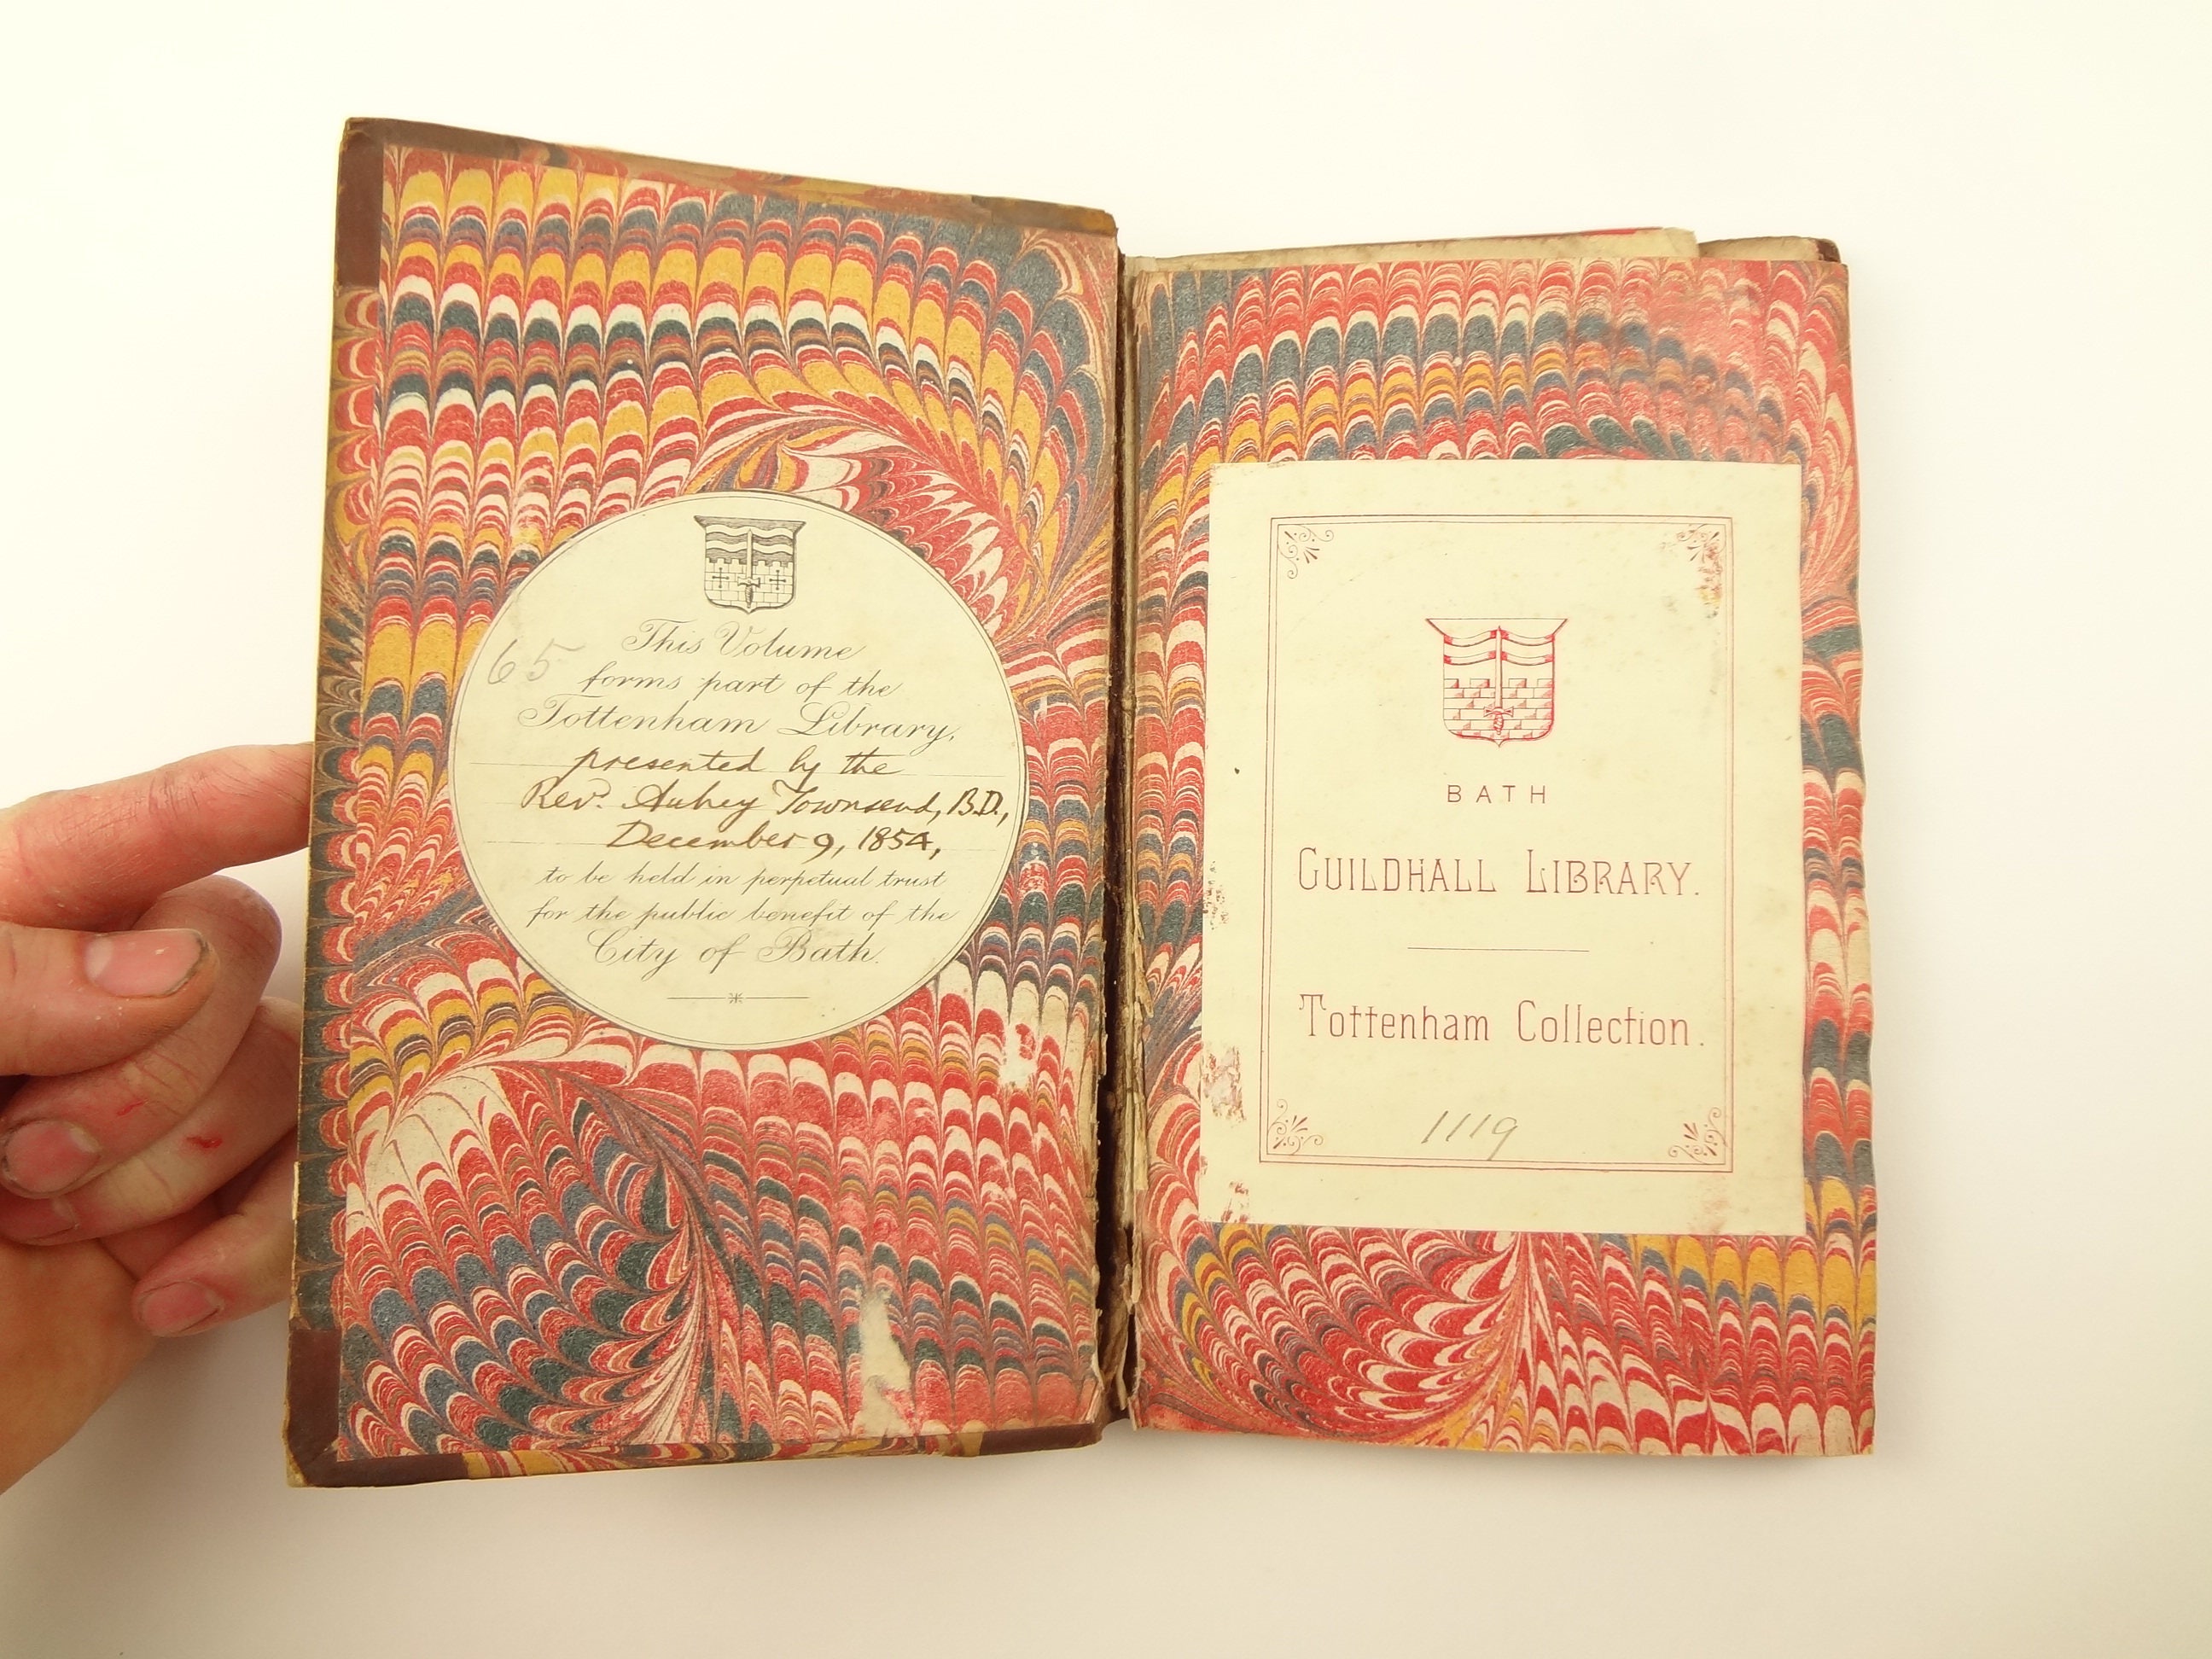 65
This Volume
forms part of the
Tottenham Library,
presented by the
Revd. Aubrey Townsend, B.D.,
December 9, 1854,
to be held in perpetual trust
for the public benefit of the
City of Bath.
BATH
GUILDHALL LIBRARY.
Tottenham Collection.
1119